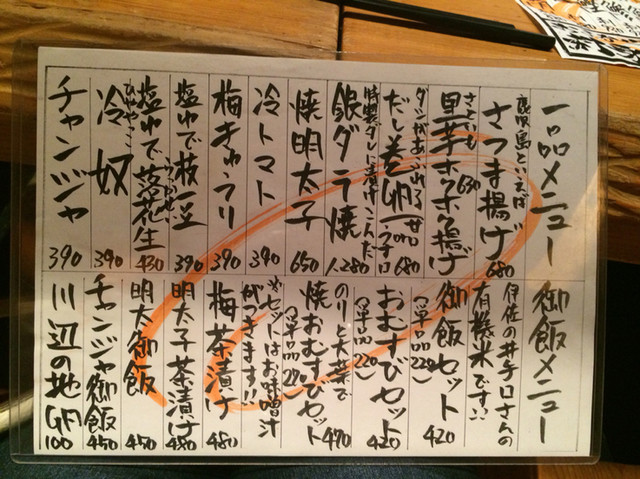 一品メニュー
鹿児島といえば
さつま揚げ 680
さといも
里芋ホクホク揚げ 630
ダシがあふれる
だし巻GF 甘口 辛口 680
特製ダレに漬けこんだ
銀ダラ焼 1,280
焼明太子 650
冷トマト 390
梅きゅうり 390
塩ゆで枝豆 390
塩ゆで落花生 430
ひややっこ
冷奴 390
チャンジャ 390
御飯メニュー
伊佐の井手口さんの
有機米です!!
御飯セット 420
(単品220)
おむすびセット 420
(単品220)
のりと大葉で
焼おむすびセット 470
(単品270)
※セットはお味噌汁
がつきます!!
梅茶漬け 480
明太子茶漬け 480
明太御飯 450
チャンジャ御飯 450
川辺の地GF 100